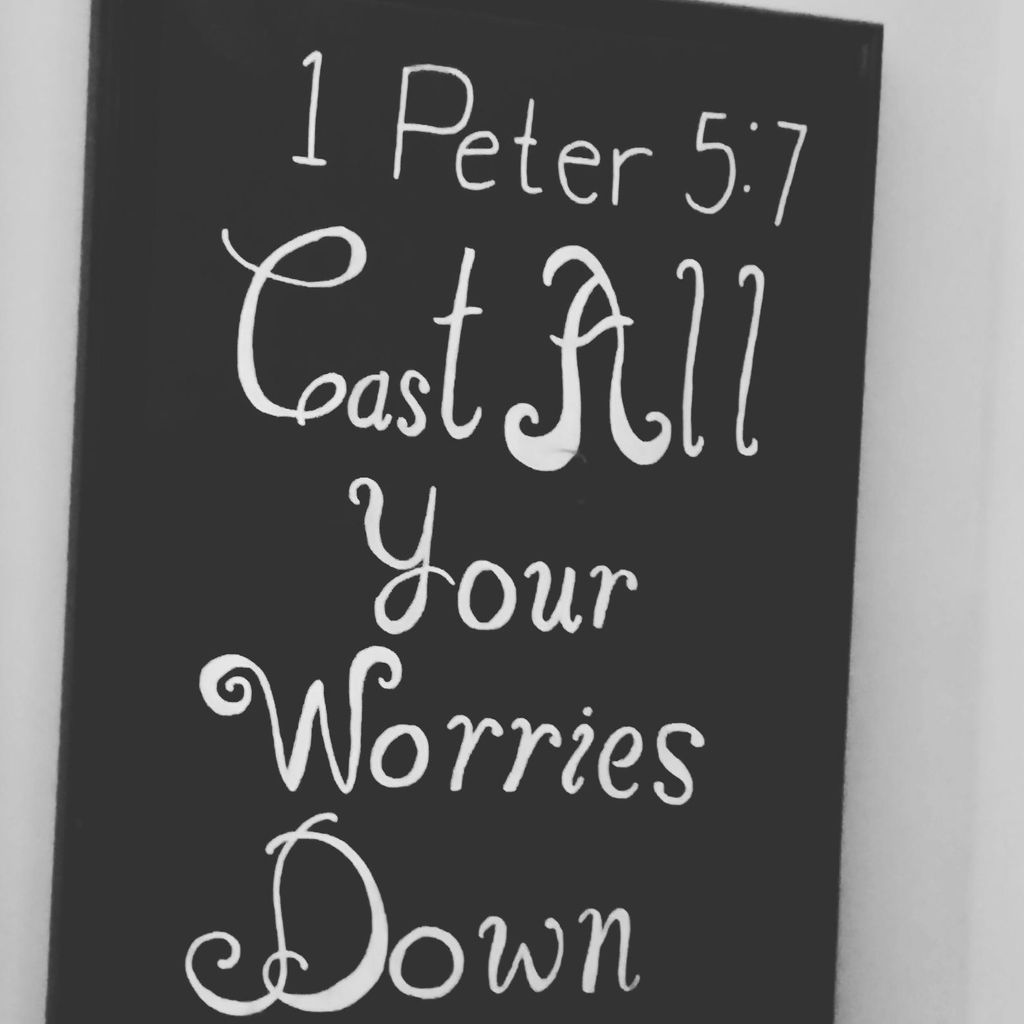 1 Peter 5:7
Cast All
Your
Worries
Down